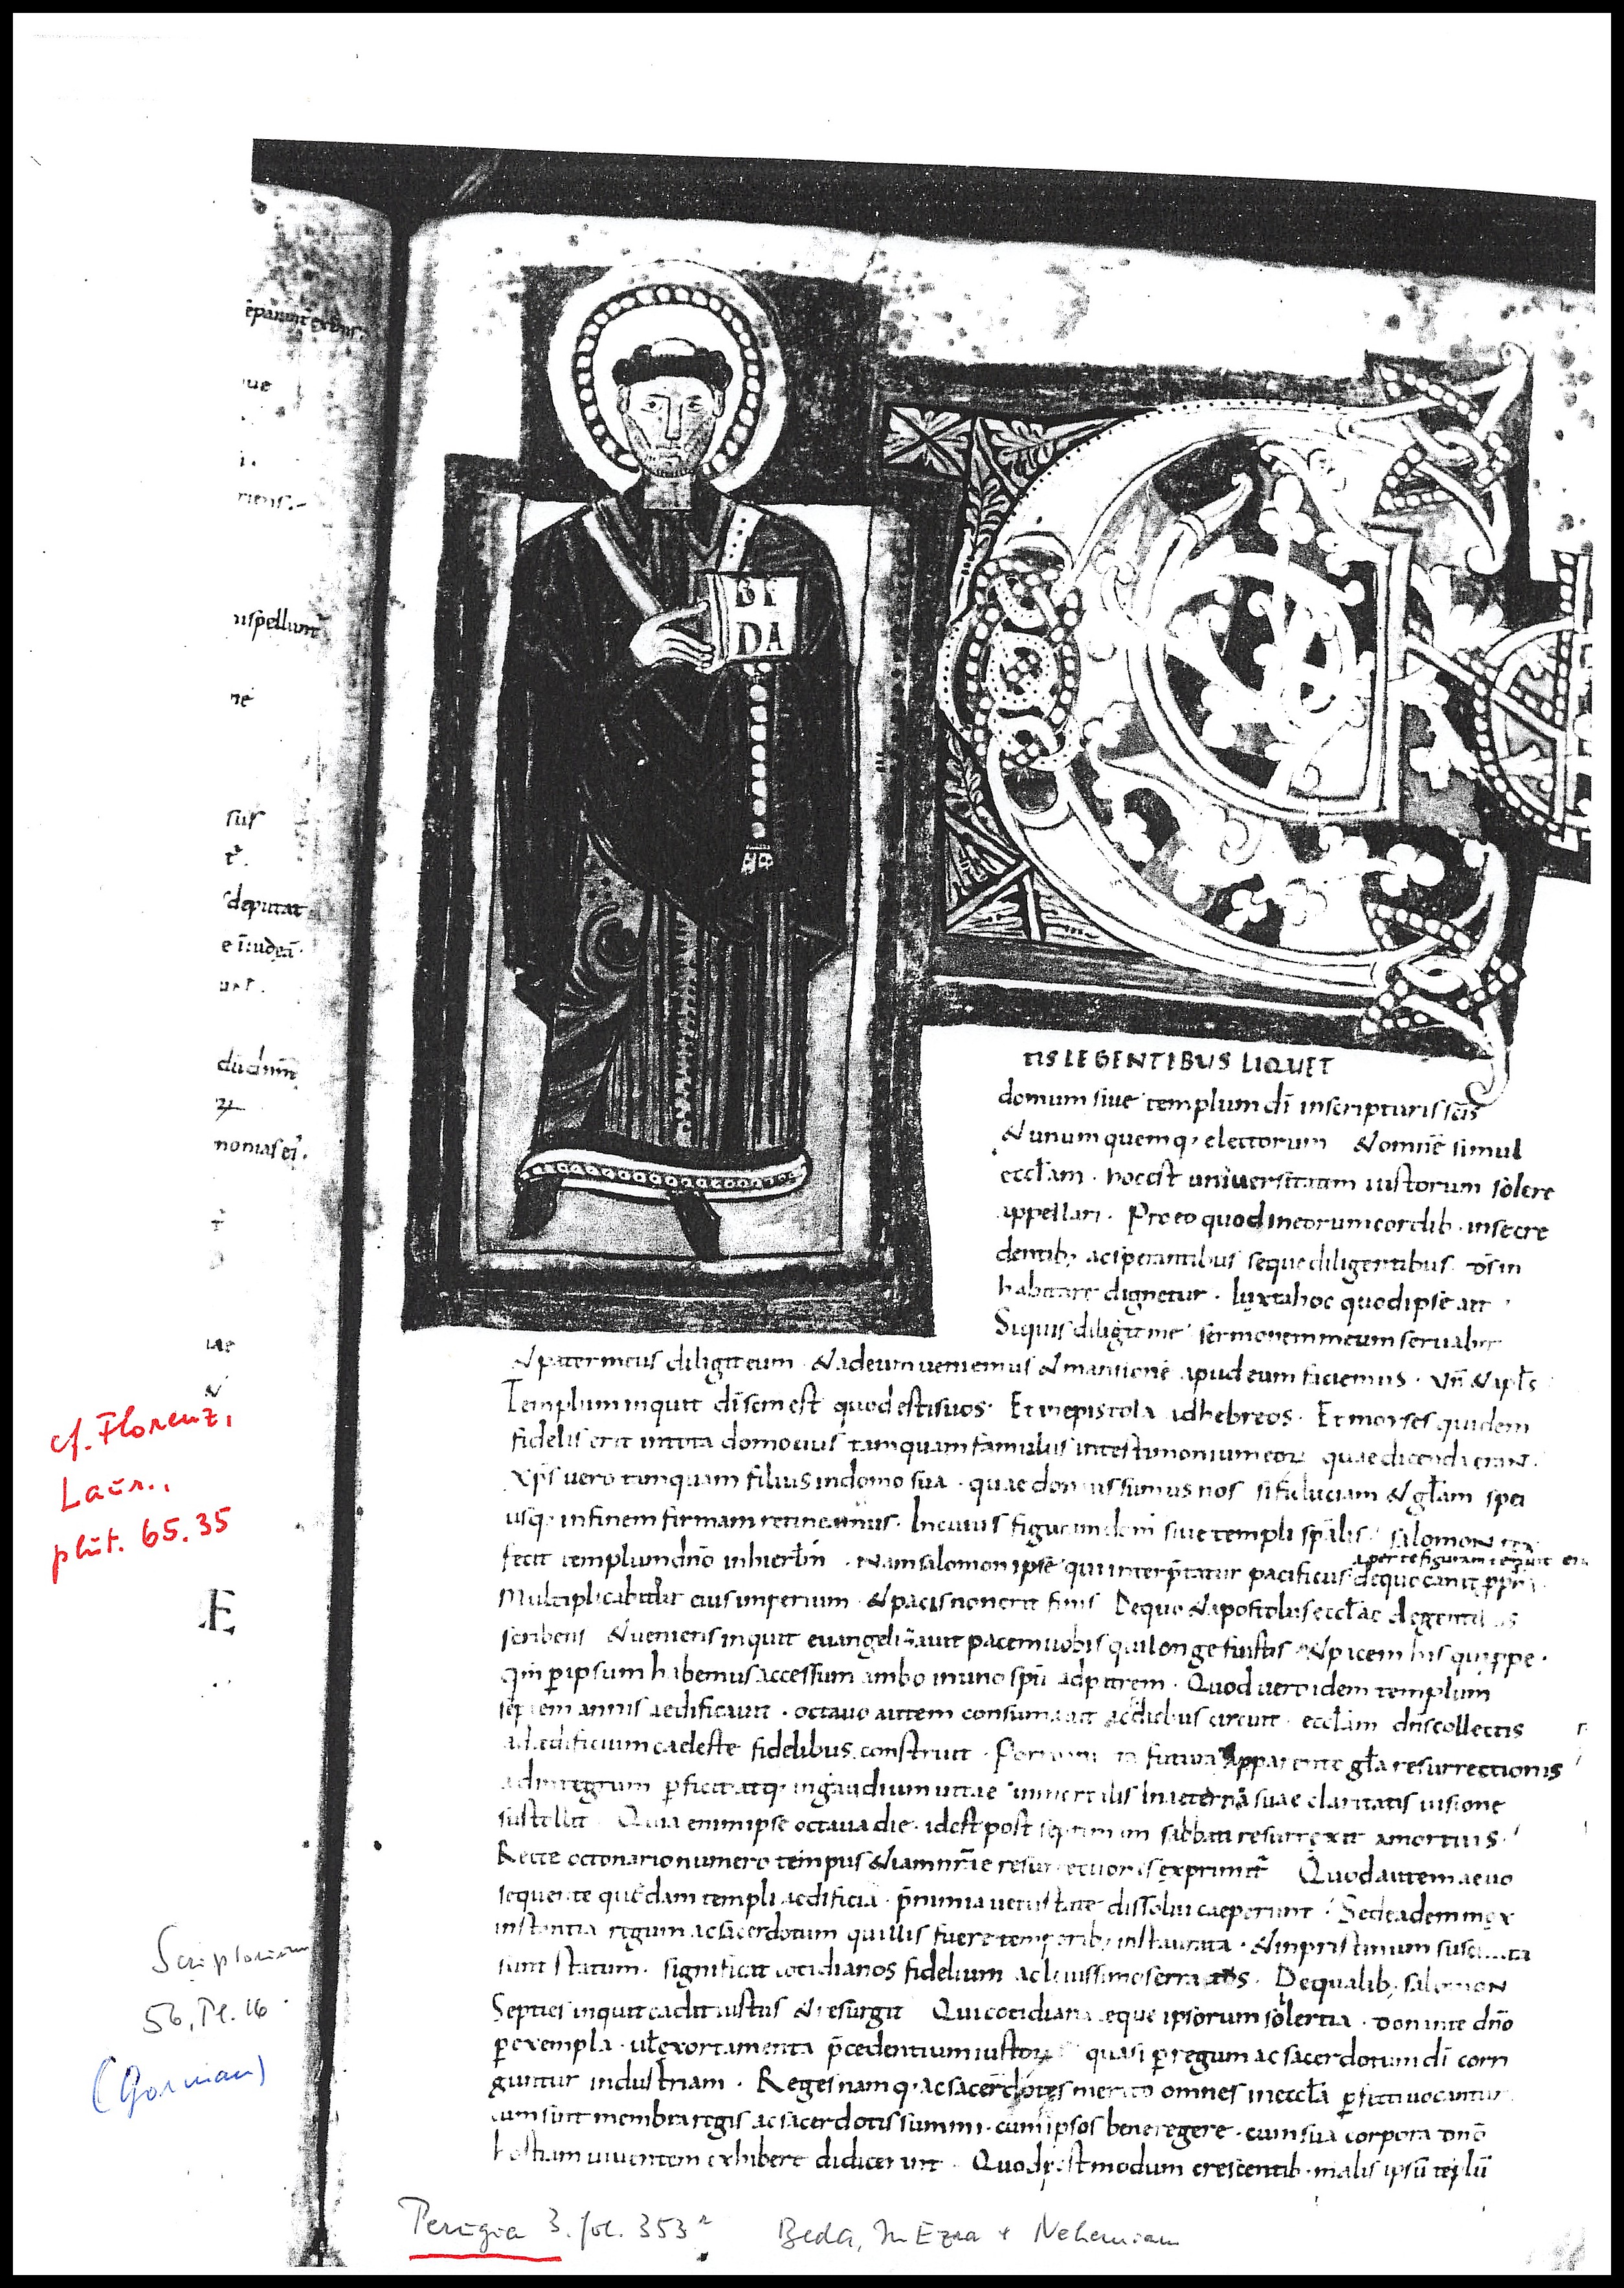 BE
DA
TIS LEGENTIBUS LIQUET
domum siue templum dī in scripturis scīs
& unumquemq; electorum & omnē simul
eccłam · hoc est uniuersitatem iustorum solere
appellari · Pro eo quod in eorum cordib· in se cre
dentib; ac sperantibus seque diligentibus ds̄ in
habitare dignetur · Iuxta hoc quod ipse ait
Siquis diligit me sermonem meum seruabit
& pater meus diligit eum · & ad eum ueniemus & mansionē apud eum faciemus · Vn̄ & apłs
Templum inquit dī scm̄ est quod estis uos · Et in epistola ad hebreos · Et moyses quidem
fidelis erat in tota domo eius tamquam famulus in testimonium eorum quae dicenda erant.
Xp̄s uero tanquam filius in domo sua · quae domus sumus nos si fiduciam & głam spei
usq; in finem firmam retineamus · In cuius figuram domus siue templi sp̄alis salomon rex
fecit templum dn̄o in hierłm · Nam salomon ipse qui interp̄tatur pacificus
aperte figuram
de quo canit
Multiplicabitur eius imperium · & pacis non erit finis De quo & apostolus eccłae de gentibus
scribens & ueniens inquit euangelizauit pacem uobis qui longe fuistis & pacem his qui ppe ·
qm̄ p ipsum habemus accessum ambo in uno spū ad patrem · Quod uero idem templum
septem annis aedificauit · octauo autem consummauit ac dedicauit eccłam dn̄s collectis
ad aedificium caeleste fidelibus construit · Porro in futura apparente gła resurrectionis
ad integrum pficit atq; in gaudium uitae inmortalis in aeternā suae claritatis uisione
sustollit Quia enim ipse octaua die · id est post septimam sabbati resurrexit a mortuis ·
Recte octonario numero tempus & iam nrāe resurrectionis exprimit Quod autem aeuo
sequente quedam templi aedificia · p̄ nimia uetustate dissolui caeperunt · Sed eadem mox
instantia regum ac sacerdotum qui illis fuere temporib; instaurata · & in pristinum suscitata
sunt statum · significat cotidianos fidelium ac leuissimos erratus · De qualib; salomon
Septies inquit cadit iustus & resurgit Qui cotidiana eque ipsorum solertia · donante dn̄o
p exempla · uł exortamenta p̄cedentium iustorum quasi p regum ac sacerdotum dī corri
guntur industriam · Reges namq; ac sacerdotes merito omnes in eccła pfecti uocantur
cum sint membra regis ac sacerdotis summi · cum ipsos bene regere · cum sua corpora dn̄o
hostiam uiuentem exhibere didicerunt · Quod post modum crescentib· malis ipsū teplū
ue
ne
sus
deputat
Æ
cf. Florenz,
Laur.,
plut. 65.35
Scriptorium
56, Pl. 16
(Gorman)
Perugia 3. fol. 353r Beda, In Ezra + Nehemiam